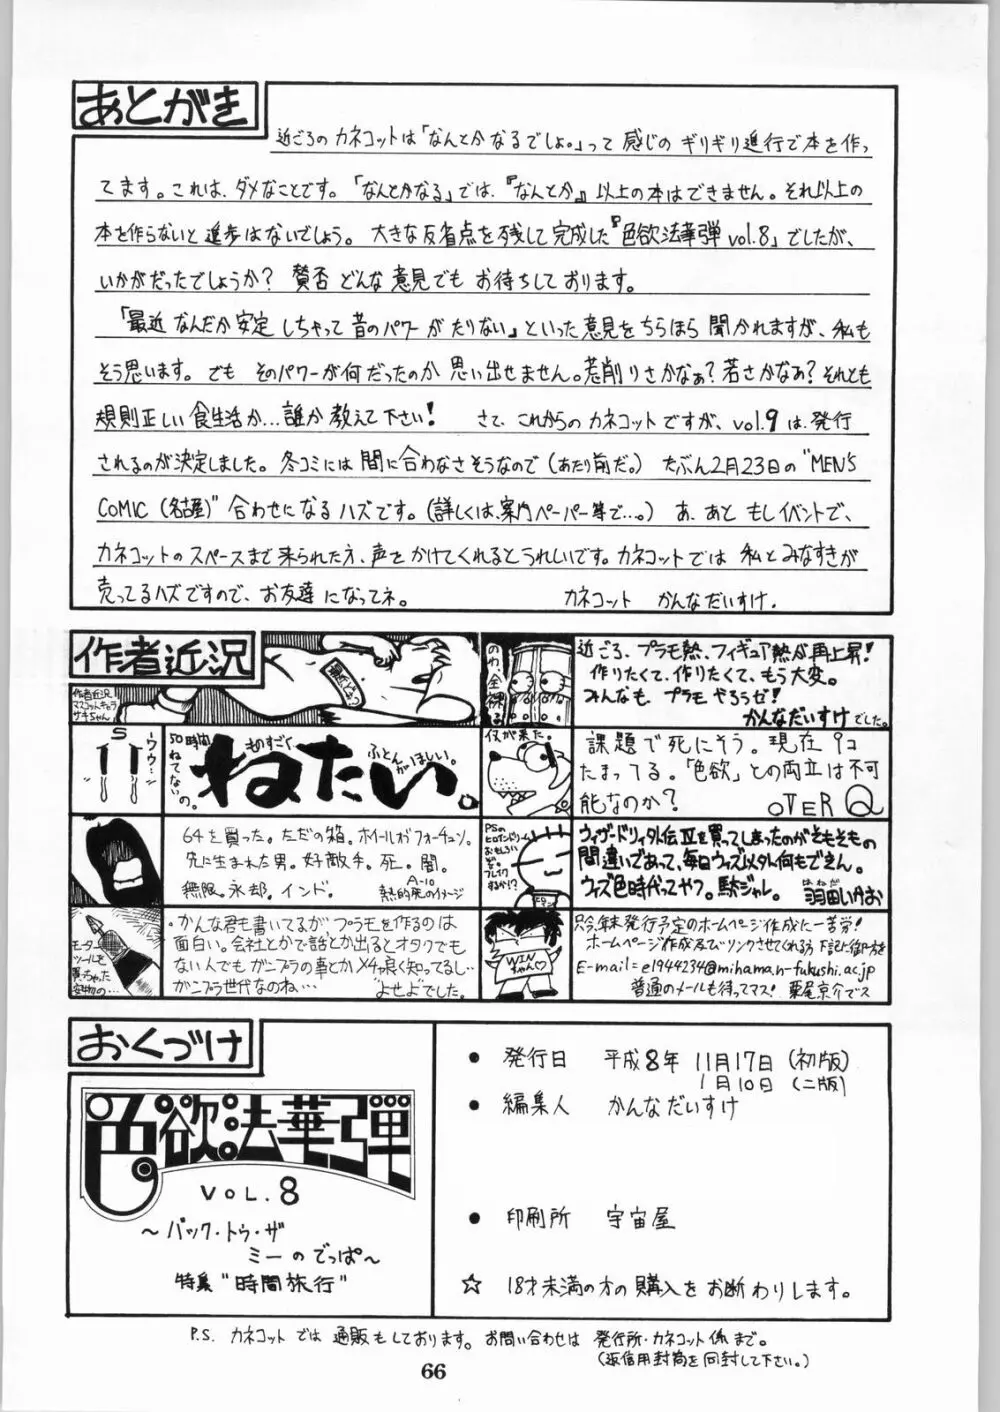 あとがき
近ごろの カネコットは「なんとかなるでしょ。」って 感じの ギリギリ進行で本を作っ
てます。これは、ダメなことです。「なんとかなる」では、『なんとか』以上の本はできません。それ以上の
本を作らないと 進歩はないでしょう。 大きな反省点を残して完成した『色欲法華弾 vol.8」でしたが、
いかがだったでしょうか? 賛否 どんな意見でも お待ちしております。
「最近 なんだか安定 しちゃって 昔のパワー が たりない」といった意見をちらほら 聞かれますが、私も
そう思います。でも そのパワーが何だったのか 思い出せません。荒削りさかなぁ?若さかなぁ?それとも
規則正しい食生活か…誰か教えて下さい! さて、これからの カネコットですが、vol.9 は、発行
されるのが決定しました。冬コミには 間に合わなさそうなので(あたり前だ。) たぶん2月23日の "MEN'S
COMIC (名古屋)" 合わせになるハズです。(詳しくは、案内ペーパー等で…。) あ、あと もしイベントで、
カネコットの スペースまで 来られた方、声を かけてくれるとうれしいです。カネコットでは 私と みなすきが
売ってるハズですので、お友達 になってネ。 カネコット かんなだいすけ.
作者近況
作者近況
マスコットキャラ
サキちゃん
のわ、全裸る。
近ごろ、プラモ熱、フィギュア熱が再上昇!
作りたくて、作りたくて、もう大変。
みんなも、プラモ やろうゼ!
かんなだいすけ でした。
ーウウ…
50時間
ねてない
の。
ものすごく
ねたい。
ふとんがほしい。
何が来た。
課題で死にそう。現在 9コ
たまってる。「色欲」との両立は不可
能なのか? OVER Q
64を買った。ただの箱。ホイールオブフォーチュン。
先に生まれた男。好敵手。死。闇。
無限。永却。インド。
A-10
熱的死のイメージ
PSの
ヒロインドリーム
おもしろい
ぞ。
ブレイク
するか!?
ウィザードリィ外伝Ⅳを買ってしまったのがそもそもの
間違いであって、毎日ウィズ以外何もできん。
ウィズ色時代ってヤツ。駄ジャレ。羽田いかお
はねだ
モーター
ツールを
買っちゃった
・かんな君も書いてるが プラモを作るのは
面白い。会社とかで話とか出るとオタクでも
ない人でも ガンプラの事とか メチャ良く知ってるし…
ガンプラ世代なのね… "よせよ"でした。
WIN
ちゃん♡
只今年末発行予定のホームページ作成に一苦労!
ホームページ作成及びリンクさせてくれる方 下記に御一方を
E-mail=e1944234@mihama.n-fukushi.ac.jp
普通のメールも待ってマス! 栗尾京介でス
おくづけ
色欲法華弾
VOL.8
～バック・トゥ・ザ
ミーの でっぱ～
特集 "時間旅行"
● 発行日 平成8年 11月17日 (初版)
1月10日 (二版)
● 編集人 かんなだいすけ
● 印刷所 宇宙屋
☆ 18才未満の方の購入を お断わりします。
P.S. カネコット では 通販もしております。お問い合わせは 発行所・カネコット係まで。
(返信用封筒を同封して下さい。)
66